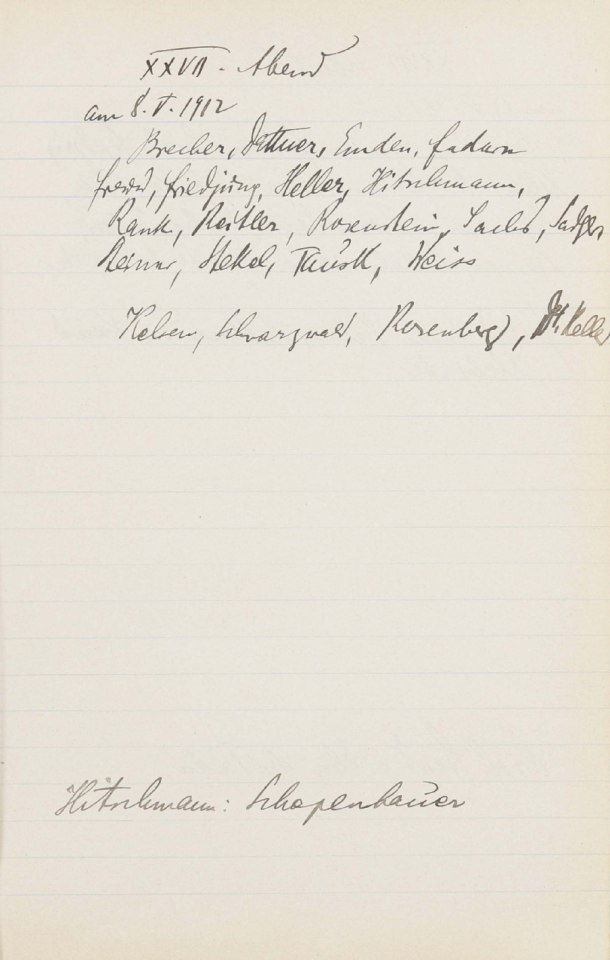 XXVII. Abend
am 8. V. 1912
Brecher, Dattner, Emden, Federn
Freud, Friedjung, Heller, Hitschmann,
Rank, Reitler, Rosenstein, Sachs, Sadger
Steiner, Stekel, Tausk, Weiss
Schwarzwald, Rosenberg, Dr. Keller
Hitschmann: Schopenhauer